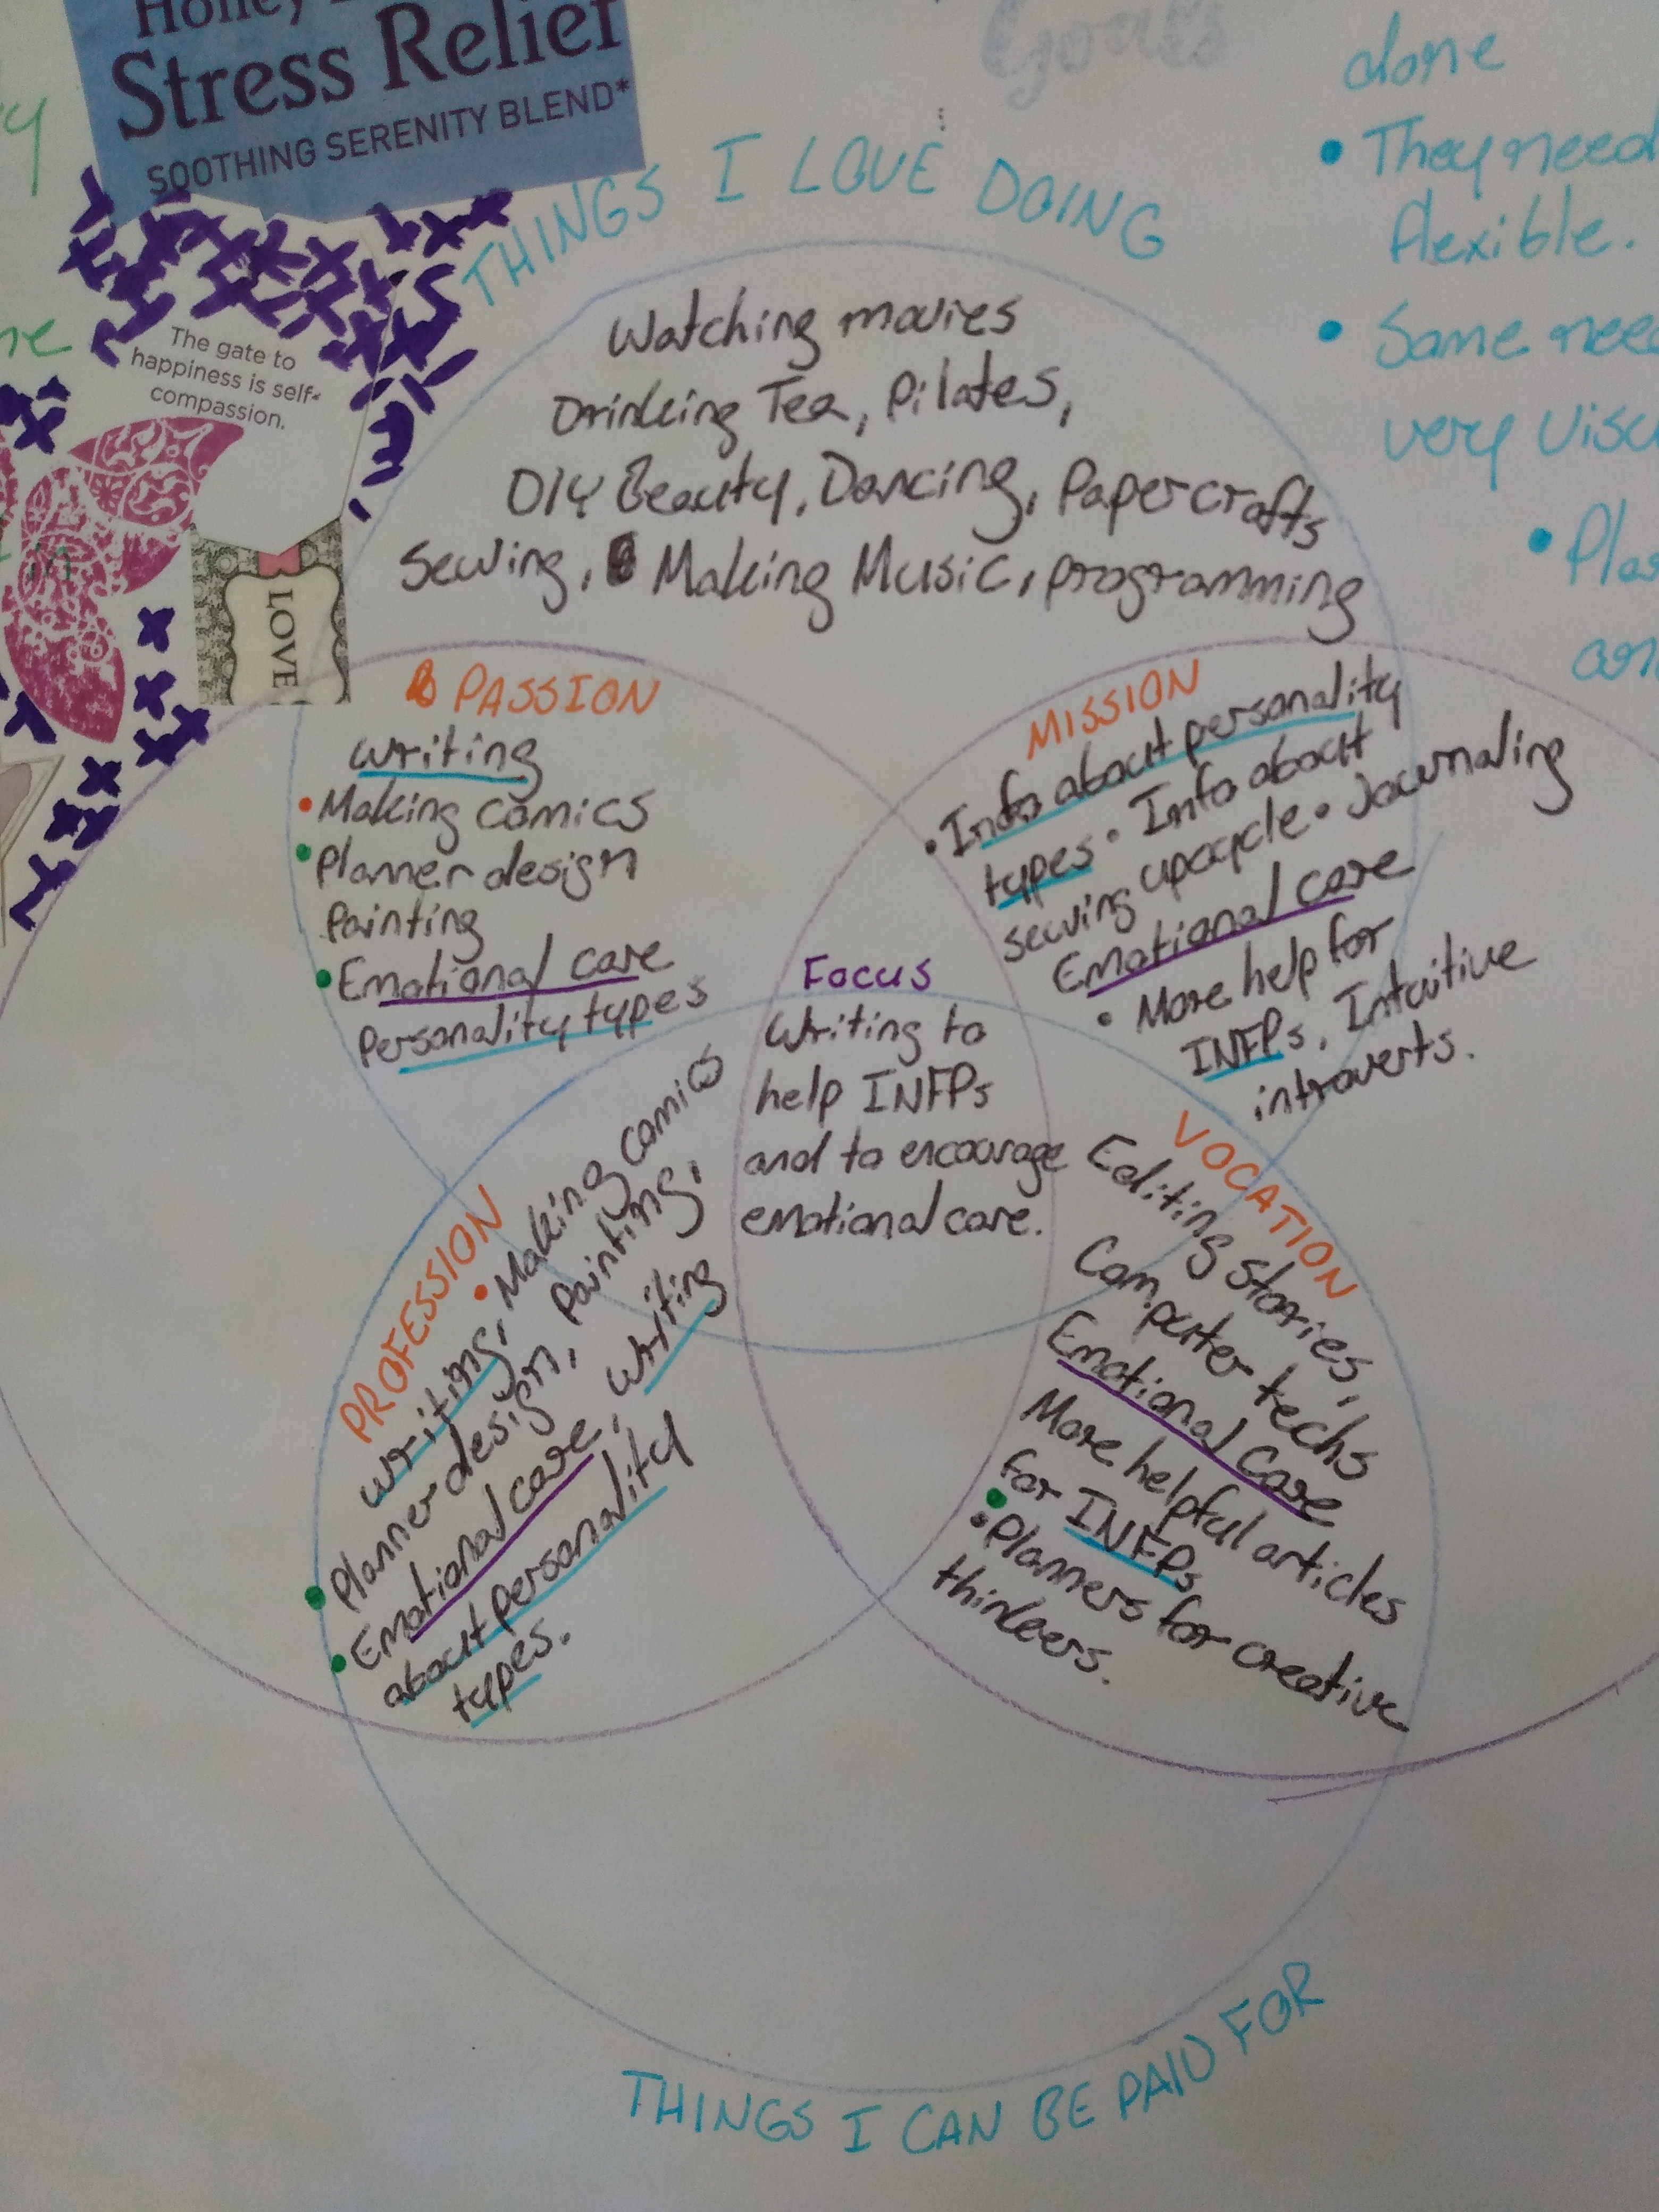 Stress Relief
SOOTHING SERENITY BLEND*
The gate to
happiness is self-
compassion.
LOVE
Goals
done
• They need
flexible.
• Some
very
THINGS I LOVE DOING
Watching movies
Drinking Tea, Pilates,
DIY Beauty, Dancing, Papercrafts
Sewing, Making Music, programming
PASSION
Writing
• Making comics
• Planner design
Painting
• Emotional care
Personality types
MISSION
• Info about personality
types • Info about
sewing upcycle • Journaling
Emotional care
• More help for
INFPs, Intuitive
introverts.
Focus
Writing to
help INFPs
and to encourage
emotional care.
PROFESSION
writing, • Making comics
• Planner design, Painting,
• Emotional care, writing
about personality
types.
VOCATION
Editing stories,
Computer techs
Emotional Care
More helpful articles
for INFPs
• Planners for creative
thinkers.
THINGS I CAN BE PAID FOR